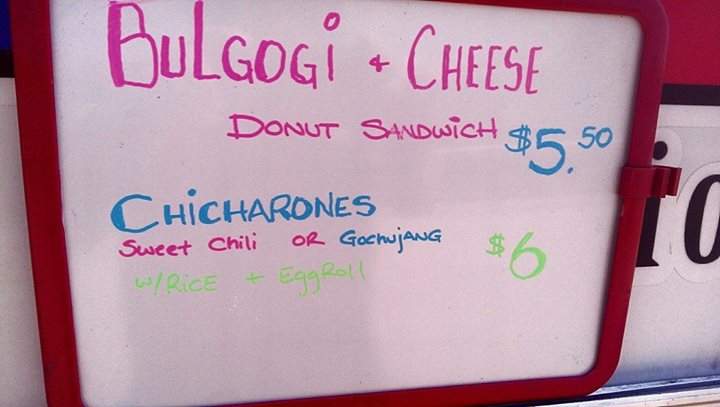 BULGOGi + CHEESE
DONUT SANDWiCH $5.50
CHiCHARONES
Sweet Chili OR GochuJANG $6
w/RiCE + EggRoll